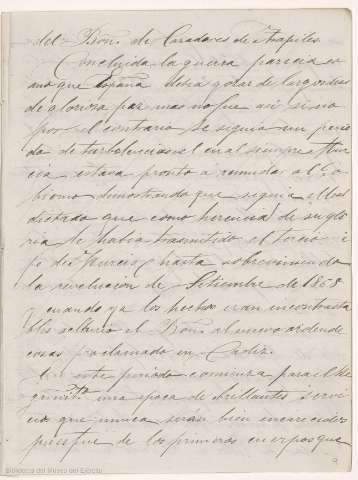 del Bon. de Cazadores de Arapiles
Concluida la guerra parecia co
mo que España debia gozar de largos dias
de gloriosa paz mas no fue asi si no
por el contrario se siguio un perio
do de turbolencias el cual siempre
estava pronto a remediar al Go
bierno demostrando que seguia el
dictado que como herencia de su glo
ria le habia trasmitido el tercio
fo de Murcia hasta sobreviniendo
la revolucion de Setiembre de 1868
y cuando ya los hechos eran incontrasta
bles se unio el Bon. al nuevo orden de
cosas proclamado en Cadiz.
En este periodo comienza para el Re
gimto. una epoca de brillantes servi
cios que nunca serán bien encarecidos
pues fue de los primeros cuerpos que
Biblioteca del Museo del Ejército